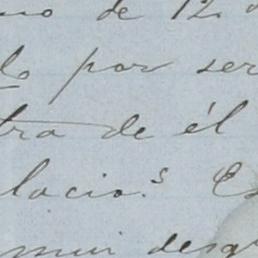 no de 12
lo por ser
tra de él
lacio.s
mui desg